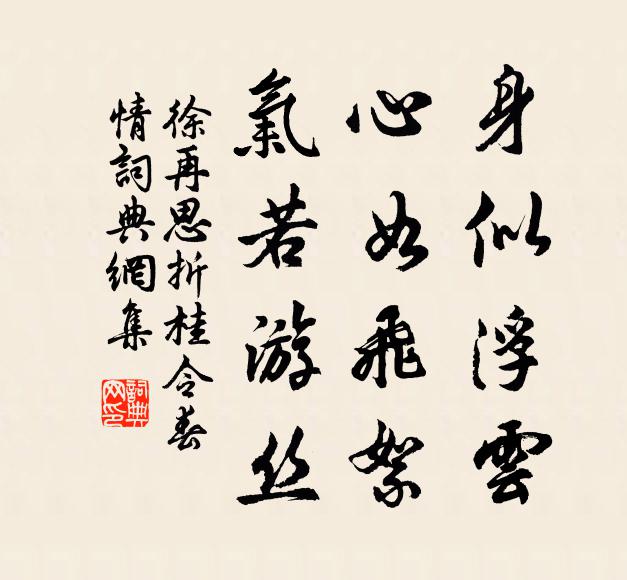 身似浮雲
心如飛絮
氣若游丝
徐再思折桂令春
情詞典網集
詞典网印